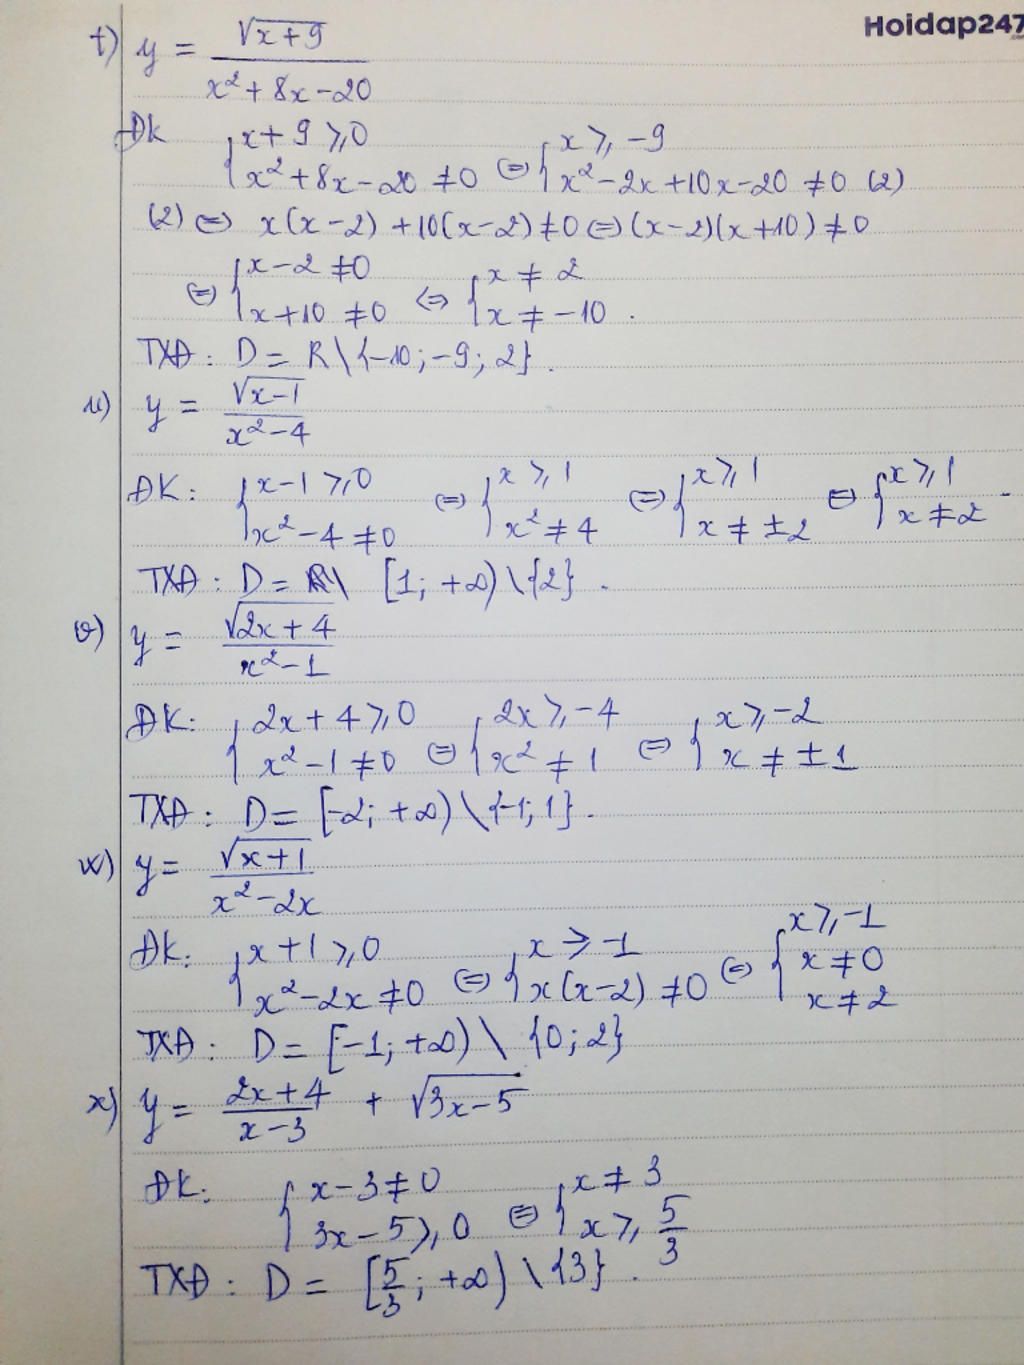 Hoidap247
.com
t) y = √(x+9) / (x² + 8x - 20)
ĐK { x + 9 ⩾ 0 ; x² + 8x - 20 ≠ 0 ⇔ { x ⩾ -9 ; x² - 2x + 10x - 20 ≠ 0 (2)
(2) ⇔ x(x-2) + 10(x-2) ≠ 0 ⇔ (x-2)(x+10) ≠ 0
⇔ { x - 2 ≠ 0 ; x + 10 ≠ 0 ⇔ { x ≠ 2 ; x ≠ -10 .
TXĐ : D = R \ {-10 ; -9 ; 2} .
u) y = √(x-1) / (x² - 4)
ĐK : { x - 1 ⩾ 0 ; x² - 4 ≠ 0 ⇔ { x ⩾ 1 ; x² ≠ 4 ⇔ { x ⩾ 1 ; x ≠ ±2 ⇔ { x ⩾ 1 ; x ≠ 2 .
TXĐ : D = [1; +∞) \ {2} .
v) y = √(2x + 4) / (x² - 1)
ĐK: { 2x + 4 ⩾ 0 ; x² - 1 ≠ 0 ⇔ { 2x ⩾ -4 ; x² ≠ 1 ⇔ { x ⩾ -2 ; x ≠ ±1
TXĐ : D = [-2; +∞) \ {-1; 1} .
w) y = √(x+1) / (x² - 2x)
ĐK: { x + 1 ⩾ 0 ; x² - 2x ≠ 0 ⇔ { x ⩾ -1 ; x(x-2) ≠ 0 ⇔ { x ⩾ -1 ; x ≠ 0 ; x ≠ 2
TXĐ : D = [-1; +∞) \ {0; 2}
x) y = (2x+4) / (x-3) + √(3x-5)
ĐK: { x - 3 ≠ 0 ; 3x - 5 ⩾ 0 ⇔ { x ≠ 3 ; x ⩾ 5/3
TXĐ : D = [5/3 ; +∞) \ {3} .